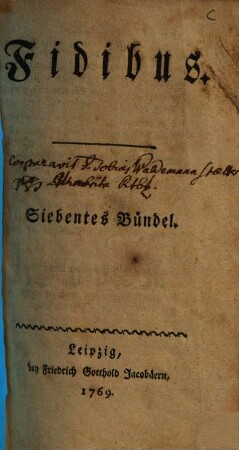 c
Fidibus.
Comparavit Tobias Waldemann
Siebentes Bündel.
Leipzig,
bey Friedrich Gotthold Jacobäern,
1769.